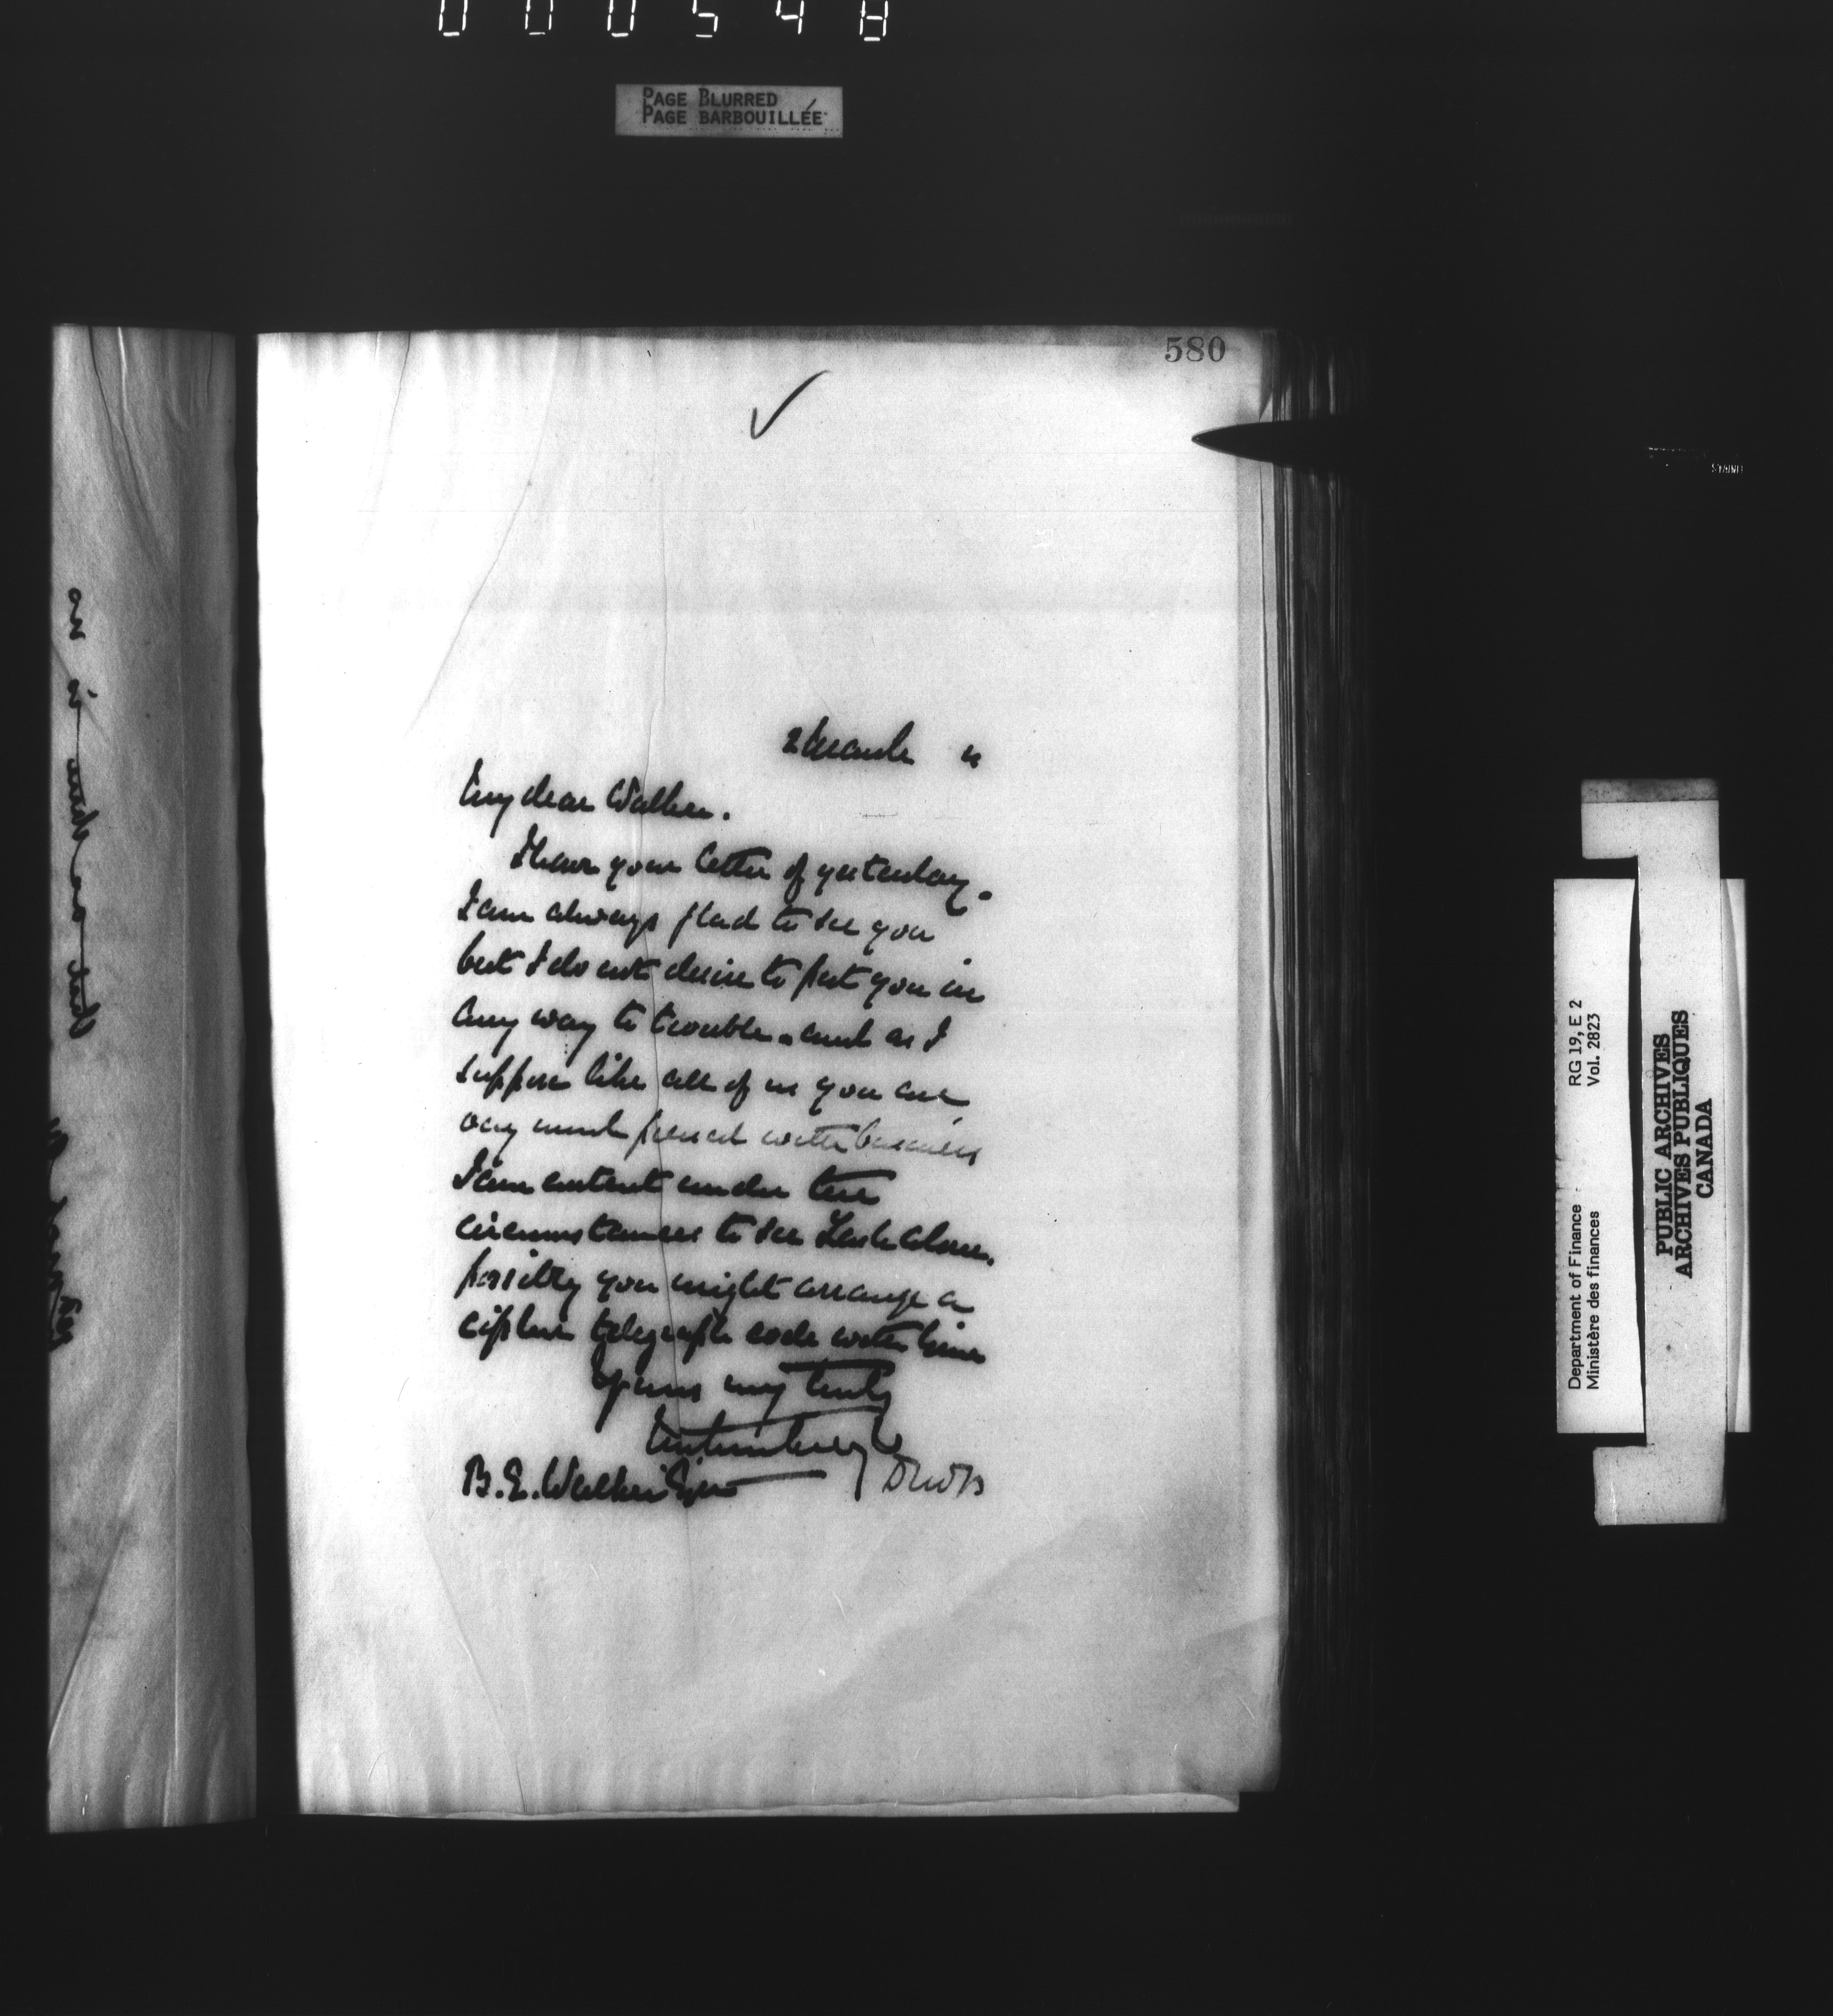 000548
PAGE BLURRED
PAGE BARBOUILLÉE
580
2 March
My dear Walker.
I have your letter of yesterday.
I am always glad to see you
but I do not desire to put you in
any way to trouble and as I
suppose like all of us you are
very much pressed with business
I am content under the
circumstances to see Lash alone.
possibly you might arrange a
cipher telegraph code with him
Yours very truly
B. E. Walker Esq
Department of Finance RG 19, E 2
Ministère des finances Vol. 2823
PUBLIC ARCHIVES
ARCHIVES PUBLIQUES
CANADA